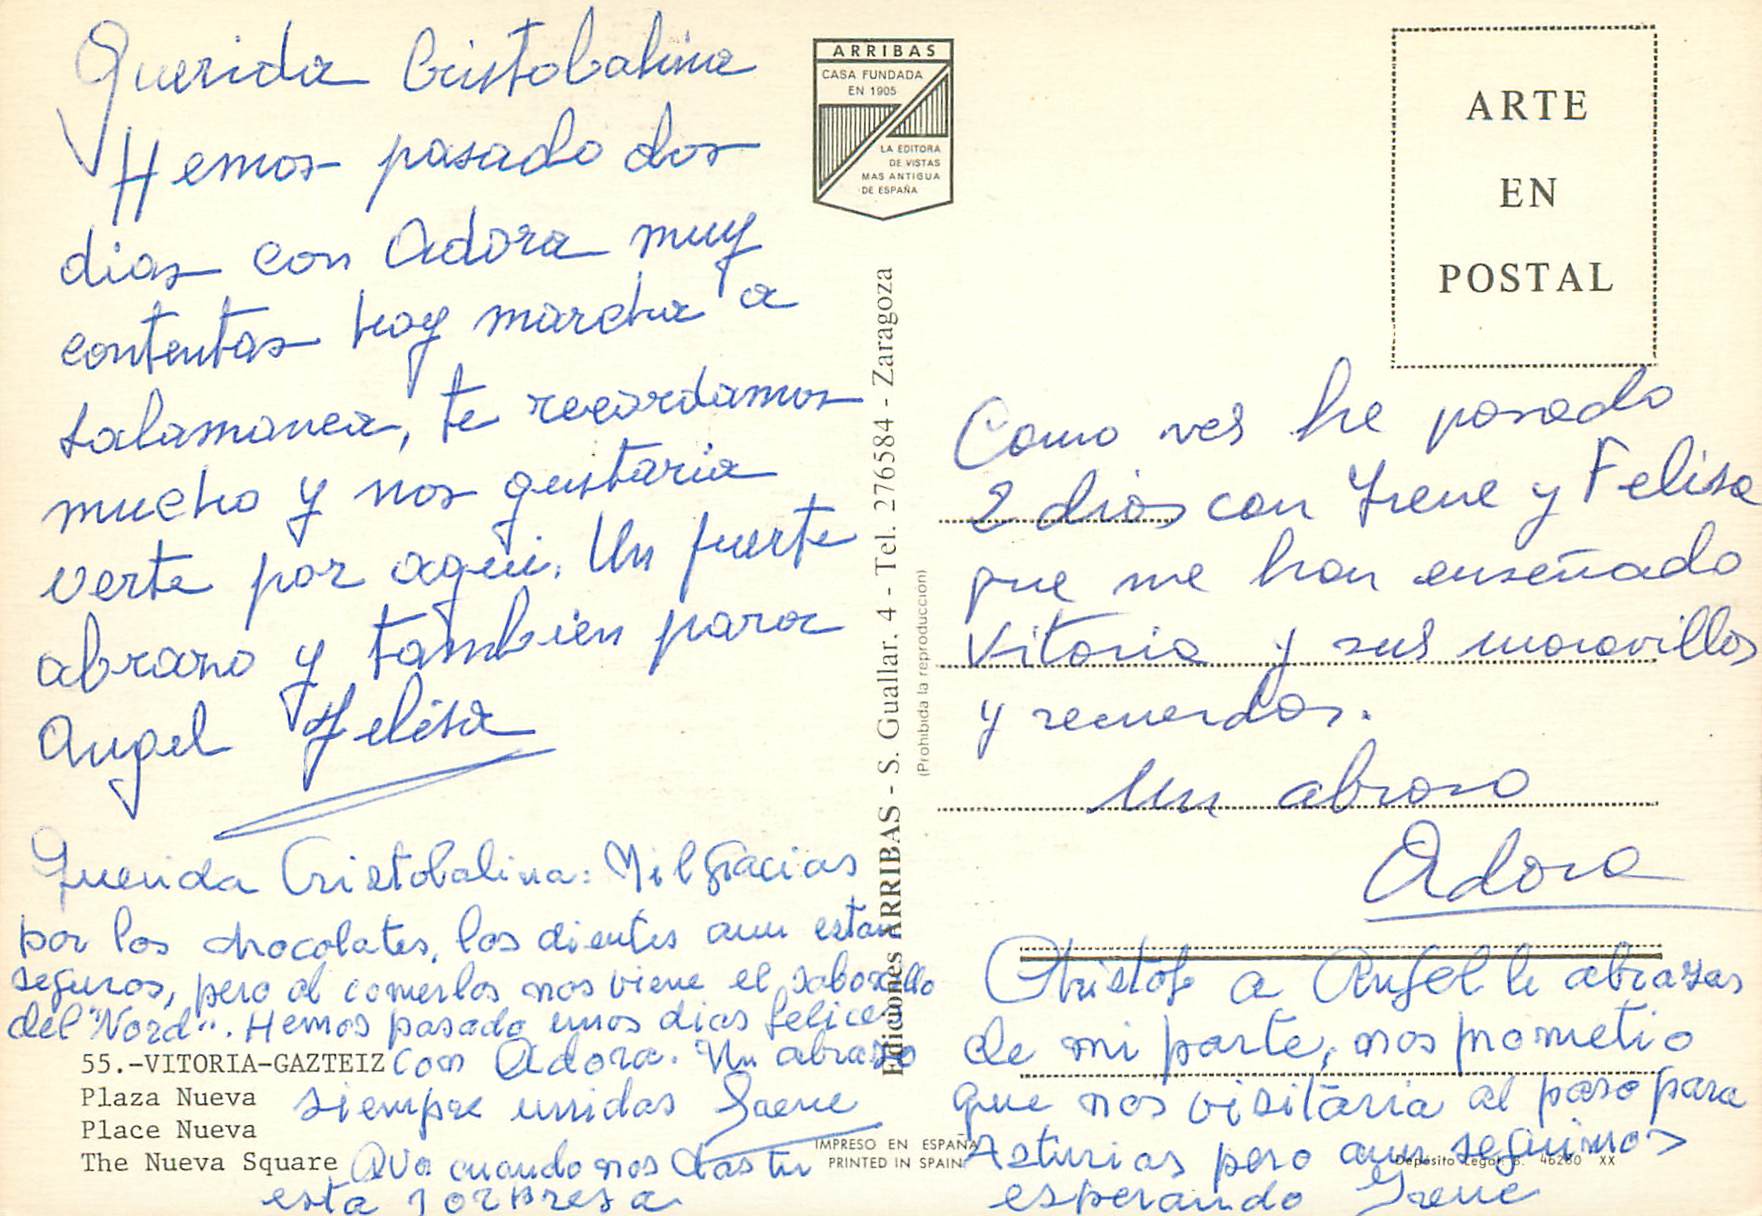 Querida Cristobalina
Hemos pasado dos
dias con Adora muy
contentas hoy marcha a
salamanca, te recordamos
mucho y nos gustaria
verte por aqui. Un fuerte
abrazo y tambien para
Angel Felisa
Querida Cristobalina: Mil gracias
por los chocolates, los dientes aun estan
seguros, pero al comerlos nos viene el saborcillo
del "Nord". Hemos pasado unos dias felices
con Adora. Un abrazo
siempre unidas Irene
Ava cuando nos das tu
esta sorpresa
55.-VITORIA-GAZTEIZ
Plaza Nueva
Place Nueva
The Nueva Square
ARRIBAS
CASA FUNDADA
EN 1905
LA EDITORA
DE VISTAS
MAS ANTIGUA
DE ESPAÑA
Ediciones ARRIBAS - S. Guallar. 4 - Tel. 276584 - Zaragoza
(Prohibida la reproduccion)
IMPRESO EN ESPAÑA
PRINTED IN SPAIN
ARTE
EN
POSTAL
Como ves he pasado
2 dias con Irene y Felisa
que me han enseñado
Vitoria y sus maravillas
y recuerdos.
Un abrazo
Adora
Christob a Angel le abrazas
de mi parte, nos prometio
que nos visitaria al paso para
Asturias pero aun seguimos
esperando Irene
Depósito Legal B. 46280 XX